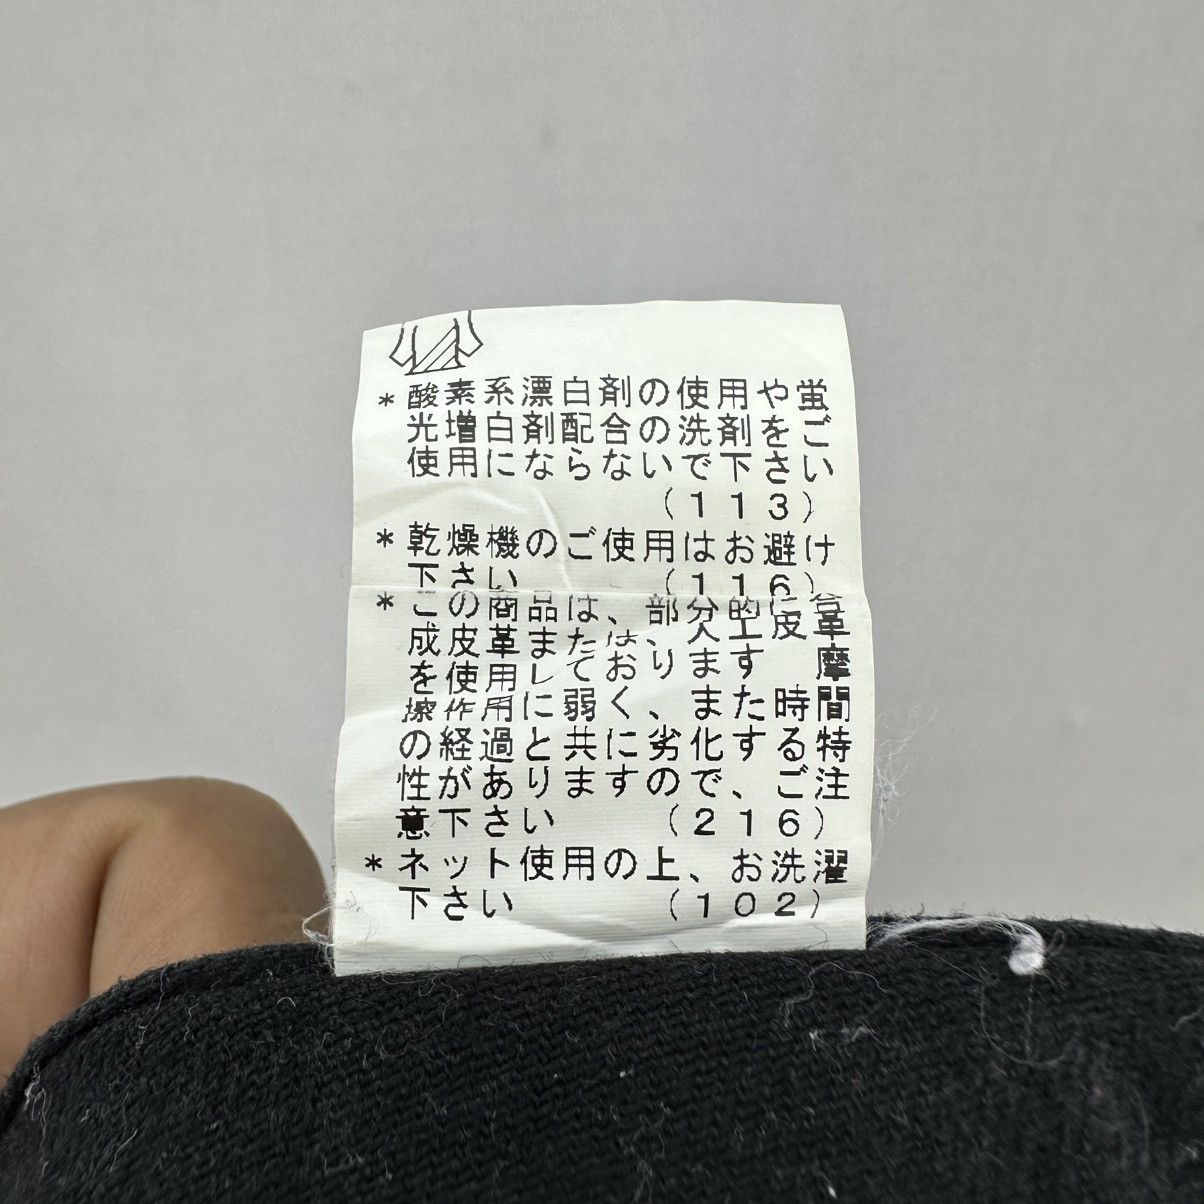 *酸素系漂白剤の使用や蛍
光増白剤配合の洗剤をご
使用にならないで下さい
(113)
*乾燥機のご使用はお避け
下さい (116)
*この商品は、部分的に合
成皮革または、人工皮革
を使用しております 摩
擦作用に弱く、また時間
の経過と共に劣化する特
性がありますので、ご注
意下さい (216)
*ネット使用の上、お洗濯
下さい (102)